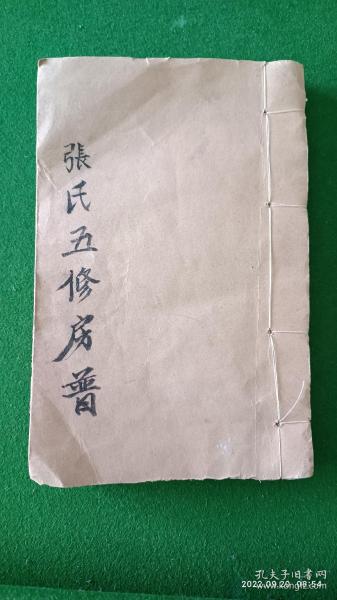 張氏五修房普
孔夫子旧书网
2022.09.20 09:54